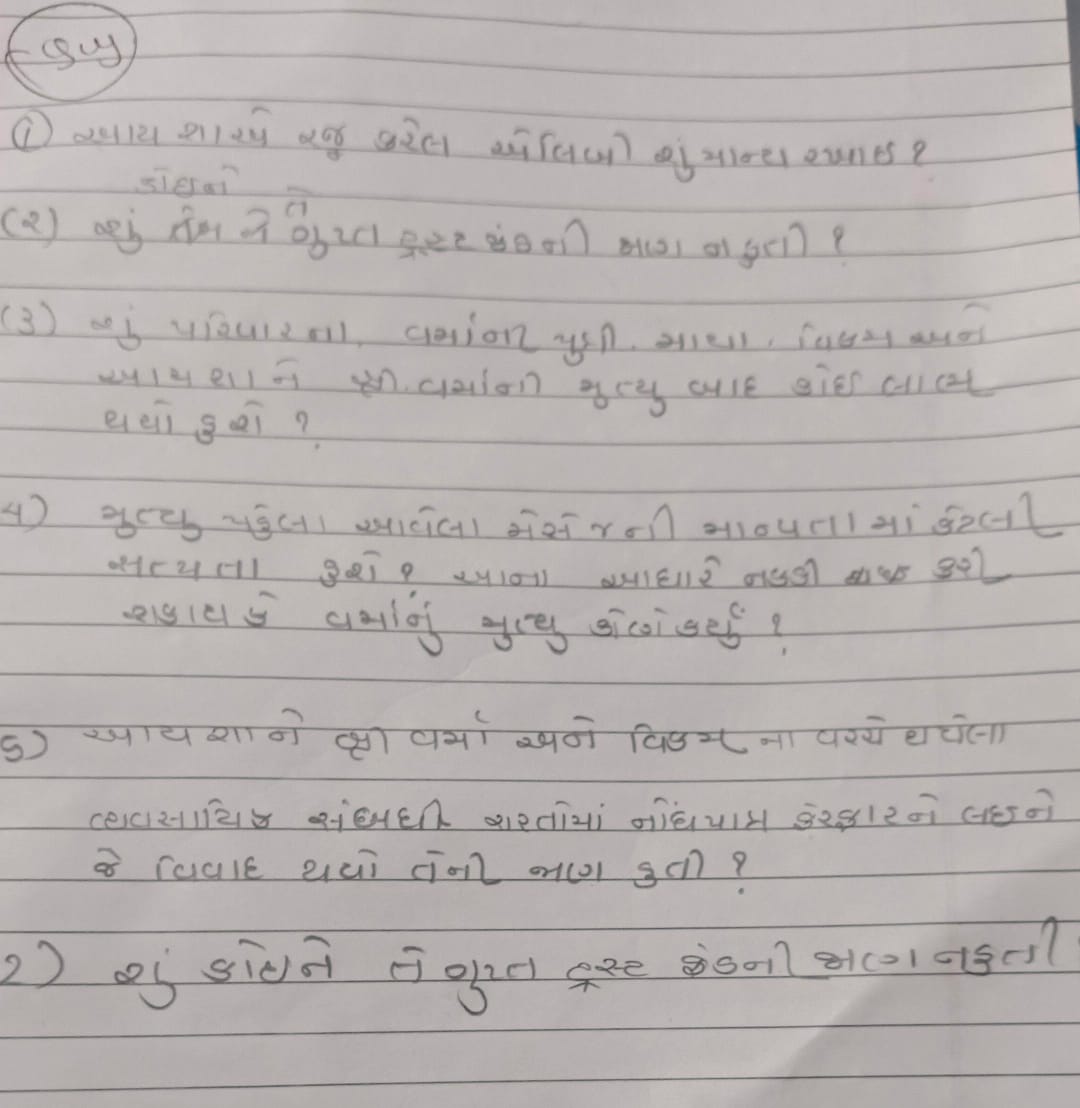 ① આયશાએ રજૂ કરેલ એલિબી શું માન્ય રખાય ?
કોઇને
(૨) શું તે ગુપ્ત ટ્રસ્ટ ફંડની જાણ ન હતી ?
(૩) શું પરિવારના, વર્માના પુત્રી. માયા, વિક્રમ અને
આયશાને શ્રી. વર્માની મૃત્યુ બાદ કોઇ લાભ
થયો હશે ?
૪) મૃત્યુ પહેલા આવેલા મેસેજની માન્યતામાં કેટલી
સત્યતા હશે ? આના આધારે નક્કી કરી
શકાય કે વર્માનું મૃત્યુ કોણે કર્યું ?
5) આયશાને શ્રી વર્મા અને વિક્રમ ના વચ્ચે થયેલા
વ્યવસાયિક સંબંધી શરતોમાં નોંધપાત્ર ફેરફારને લઇને
જે વિવાદ થયો તેની જાણ હતી ?
2) શું કોઇને તે ગુપ્ત ટ્રસ્ટ ફંડની જાણ નહતી